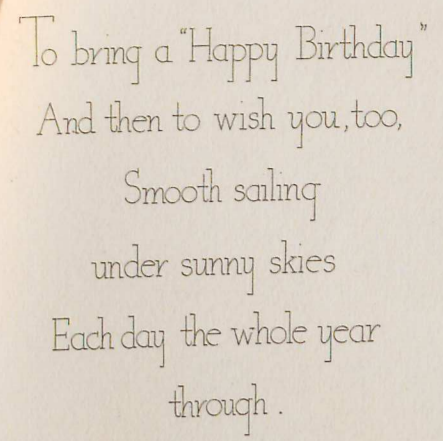 To bring a "Happy Birthday"
And then to wish you, too,
Smooth sailing
under sunny skies
Each day the whole year
through.